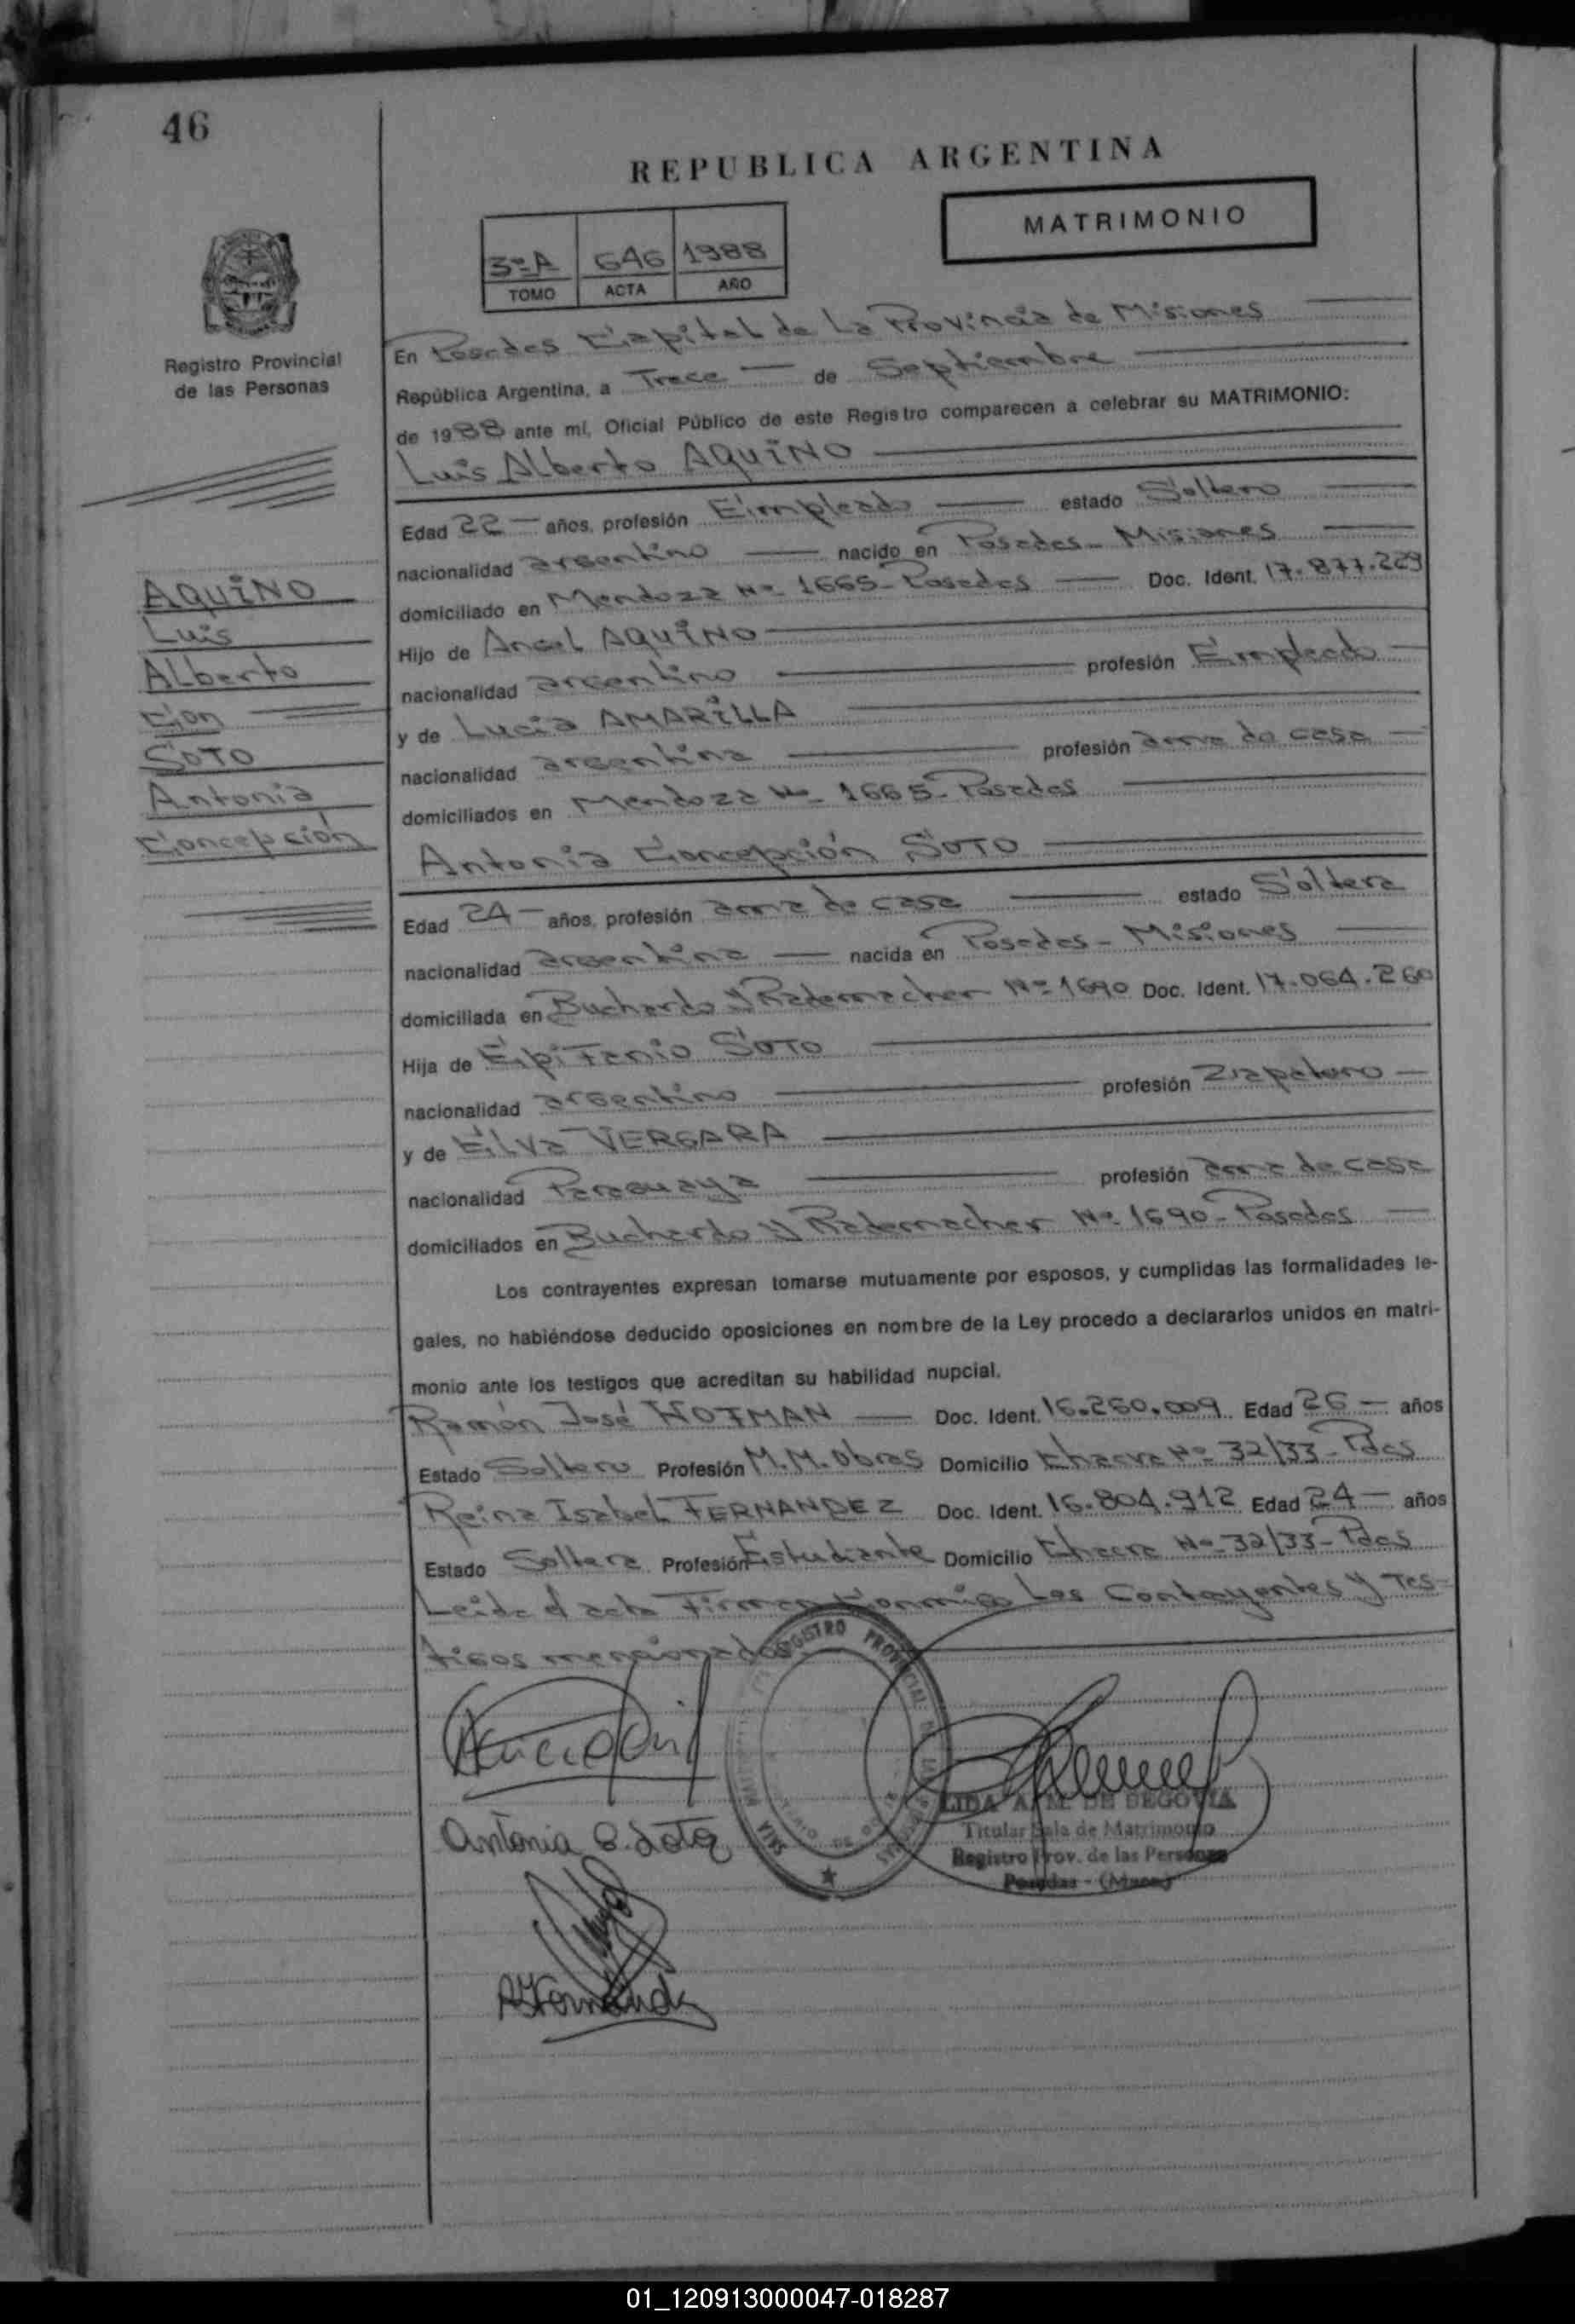 46
REPUBLICA ARGENTINA
MATRIMONIO
3ºA 646 1988
TOMO ACTA AÑO
Registro Provincial
de las Personas
En Posadas Capital de La Provincia de Misiones
República Argentina, a Trece de Septiembre
de 1988 ante mí, Oficial Público de este Registro comparecen a celebrar su MATRIMONIO:
Luis Alberto AQUINO
Edad 22 años, profesión Empleado estado Soltero
nacionalidad argentino nacido en Posadas - Misiones
domiciliado en Mendoza Nº 1665 - Posadas Doc. Ident. 17.877.229
Hijo de Angel AQUINO
nacionalidad argentino profesión Empleado
y de Lucia AMARILLA
nacionalidad argentina profesión ama de casa
domiciliados en Mendoza Nº 1665 - Posadas
AQUINO
Luis
Alberto
Con
SOTO
Antonia
Concepción
Antonia Concepción SOTO
Edad 24 años, profesión ama de casa estado Soltera
nacionalidad argentina nacida en Posadas - Misiones
domiciliada en Buchardo y Rademacher Nº 1690 Doc. Ident. 17.064.260
Hija de Epifanio SOTO
nacionalidad argentino profesión Zapatero
y de Elva VERGARA
nacionalidad Paraguaya profesión ama de casa
domiciliados en Buchardo y Rademacher Nº 1690 - Posadas
Los contrayentes expresan tomarse mutuamente por esposos, y cumplidas las formalidades le-
gales, no habiéndose deducido oposiciones en nombre de la Ley procedo a declararlos unidos en matri-
monio ante los testigos que acreditan su habilidad nupcial.
Ramón José Doc. Ident. 16.260.009 Edad 26 años
Estado Soltero Profesión M.M.Obras Domicilio Chacra Nº 32/33 - Pdas
Reina Isabel FERNANDEZ Doc. Ident. 16.804.912 Edad 24 años
Estado Soltera Profesión Estudiante Domicilio Chacra Nº 32/33 - Pdas
Leida el acta Firman Conmigo Los Contrayentes y Tes-
tigos mencionados
REGISTRO PROVINCIAL DE LAS PERSONAS
Antonia C. Soto
LIDA A. M. DE SEGOVIA
Titular Sala de Matrimonio
Registro Prov. de las Personas
Posadas - (Mnes.)
RIFernandez
01_120913000047-018287